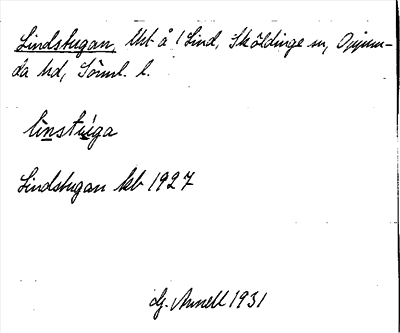 Lindstugan, lht å 1 Lind, Sköldinge sn, Oppun-
da hd, Söml. l.
linstúga
Lindstugan kb 1927
Gj. Annell 1931